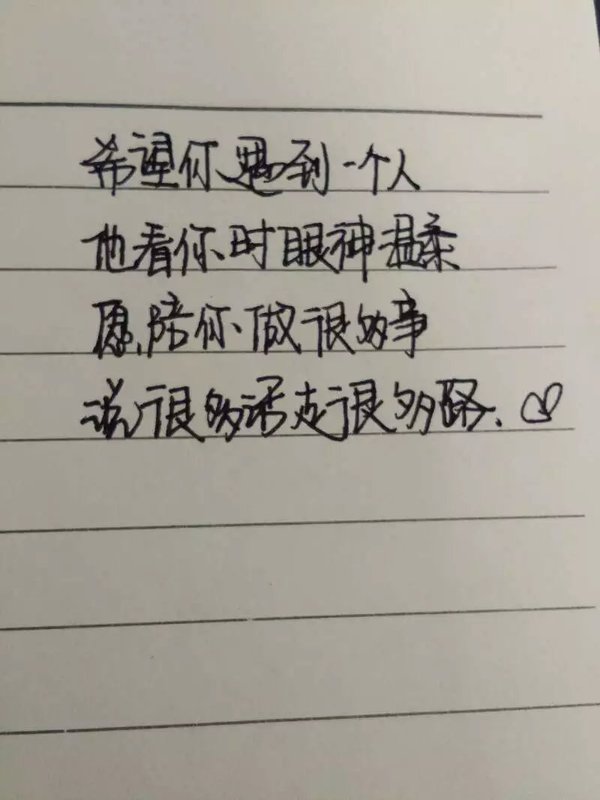 希望你遇到一个人
他看你时眼神温柔
愿陪你做很多事
说很多话走很多路.